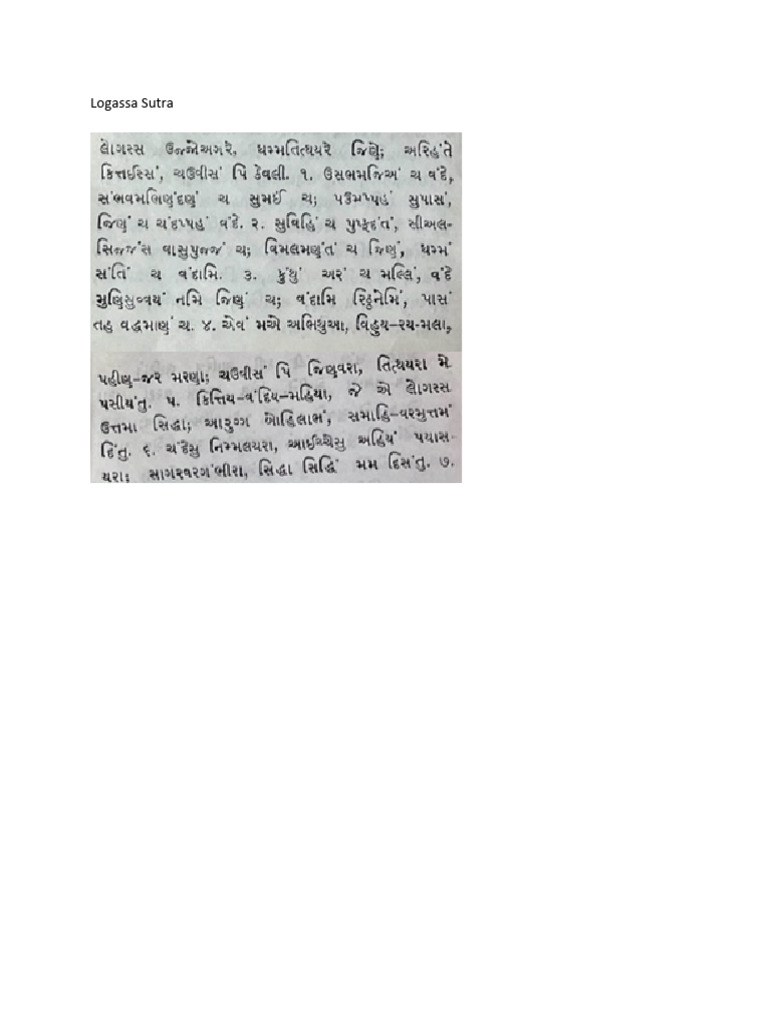 Logassa Sutra
લોગસ્સ ઉજ્જોઅગરે, ધમ્મતિત્થયરે જિણે; અરિહંતે
કિત્તઈસ્સં, ચઉવીસં પિ કેવલી. ૧. ઉસભમજિઅં ચ વંદે,
સંભવમભિણંદણં ચ સુમઈં ચ; પઉમપ્પહં સુપાસં,
જિણં ચ ચંદપ્પહં વંદે. ૨. સુવિહિં ચ પુપ્ફદંતં, સીઅલ-
સિજ્જંસ વાસુપુજ્જં ચ; વિમલમણંતં ચ જિણં, ધમ્મં
સંતિં ચ વંદામિ. ૩. કુંથું અરં ચ મલ્લિં, વંદે
મુણિસુવ્વયં નમિ જિણં ચ; વંદામિ રિટ્ઠનેમિં, પાસં
તહ વદ્ધમાણં ચ. ૪. એવં મએ અભિથુઆ, વિહુય-રય-મલા,
પહીણ-જર મરણા; ચઉવીસં પિ જિણવરા, તિત્થયરા મે
પસીયંતુ. ૫. કિત્તિય-વંદિય-મહિયા, જે એ લોગસ્સ
ઉત્તમા સિદ્ધા; આરુગ્ગ બોહિલાભં, સમાહિ-વરમુત્તમં
દિંતુ. ૬. ચંદેસુ નિમ્મલયરા, આઈચ્ચેસુ અહિયં પયાસ-
યરા; સાગરવરગંભીરા, સિદ્ધા સિદ્ધિં મમ દિસંતુ. ૭.